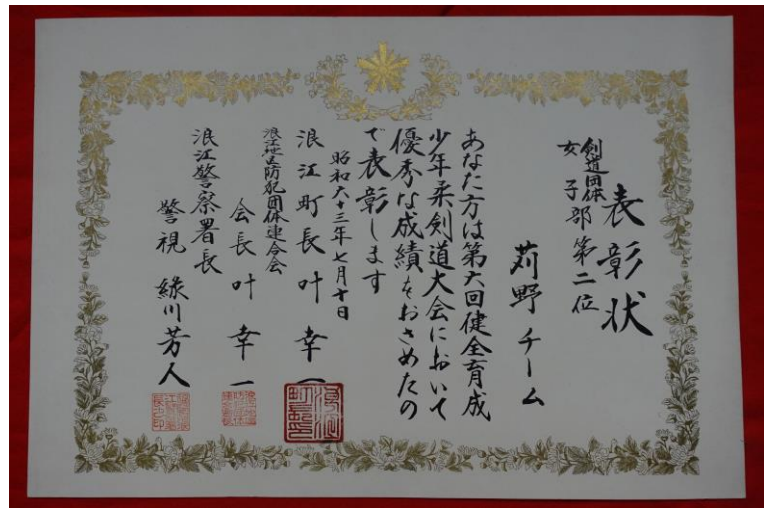 表彰状
剣道団体
女子部第二位
苅野チーム
あなた方は第六回健全育成
少年柔剣道大会において
優秀な成績をおさめたの
で表彰します
昭和六十三年七月十日
浪江町長叶幸一
浪江地区防犯団体連合会
会長叶幸一
浪江警察署長
警視緑川芳人